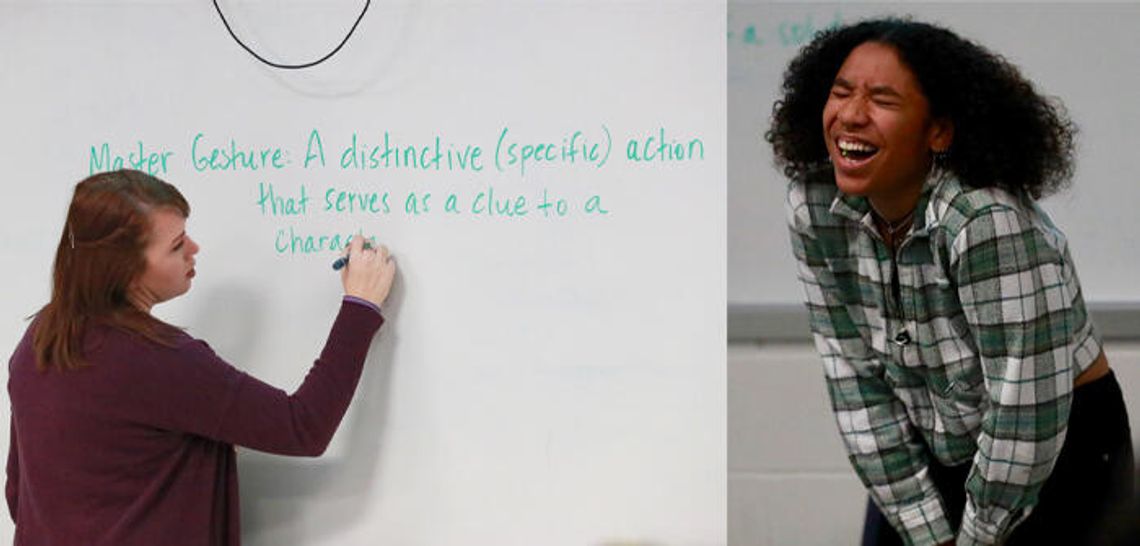 Master Gesture: A distinctive (specific) action
that serves as a clue to a